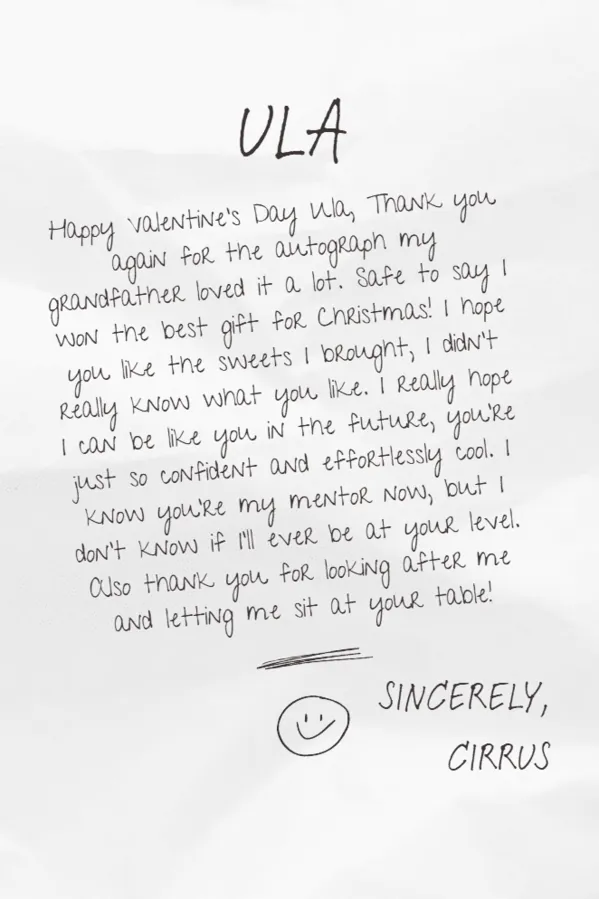 ULA
Happy Valentine's Day Ula, Thank you
again for the autograph my
grandfather loved it a lot. Safe to say I
won the best gift for Christmas! I hope
you like the sweets I brought, I didn't
really know what you like. I really hope
I can be like you in the future, you're
just so confident and effortlessly cool. I
know you're my mentor now, but I
don't know if I'll ever be at your level.
Also thank you for looking after me
and letting me sit at your table!
SINCERELY,
CIRRUS